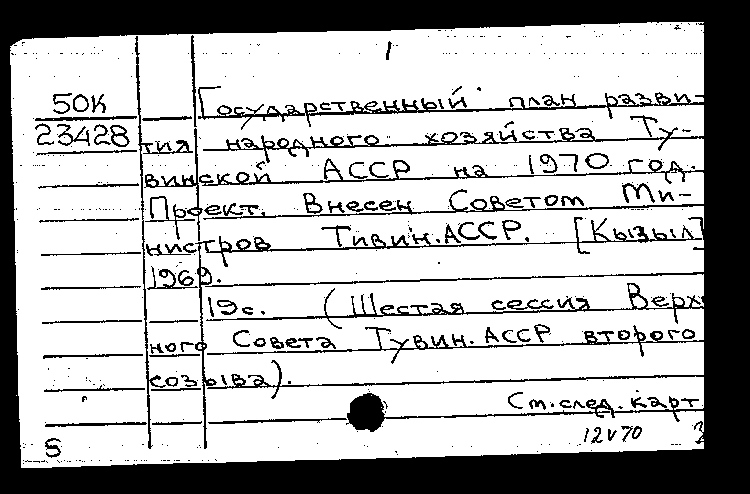 50К Государственный план разви-
23428 тия народного хозяйства Ту-
винской АССР на 1970 год.
Проект. Внесен Советом Ми-
нистров Тивин.АССР. [Кызыл]
1969.
19с. (Шестая сессия Верх
ного Совета Тувин.АССР второго
созыва).
См.след.карт
12 V 70
S